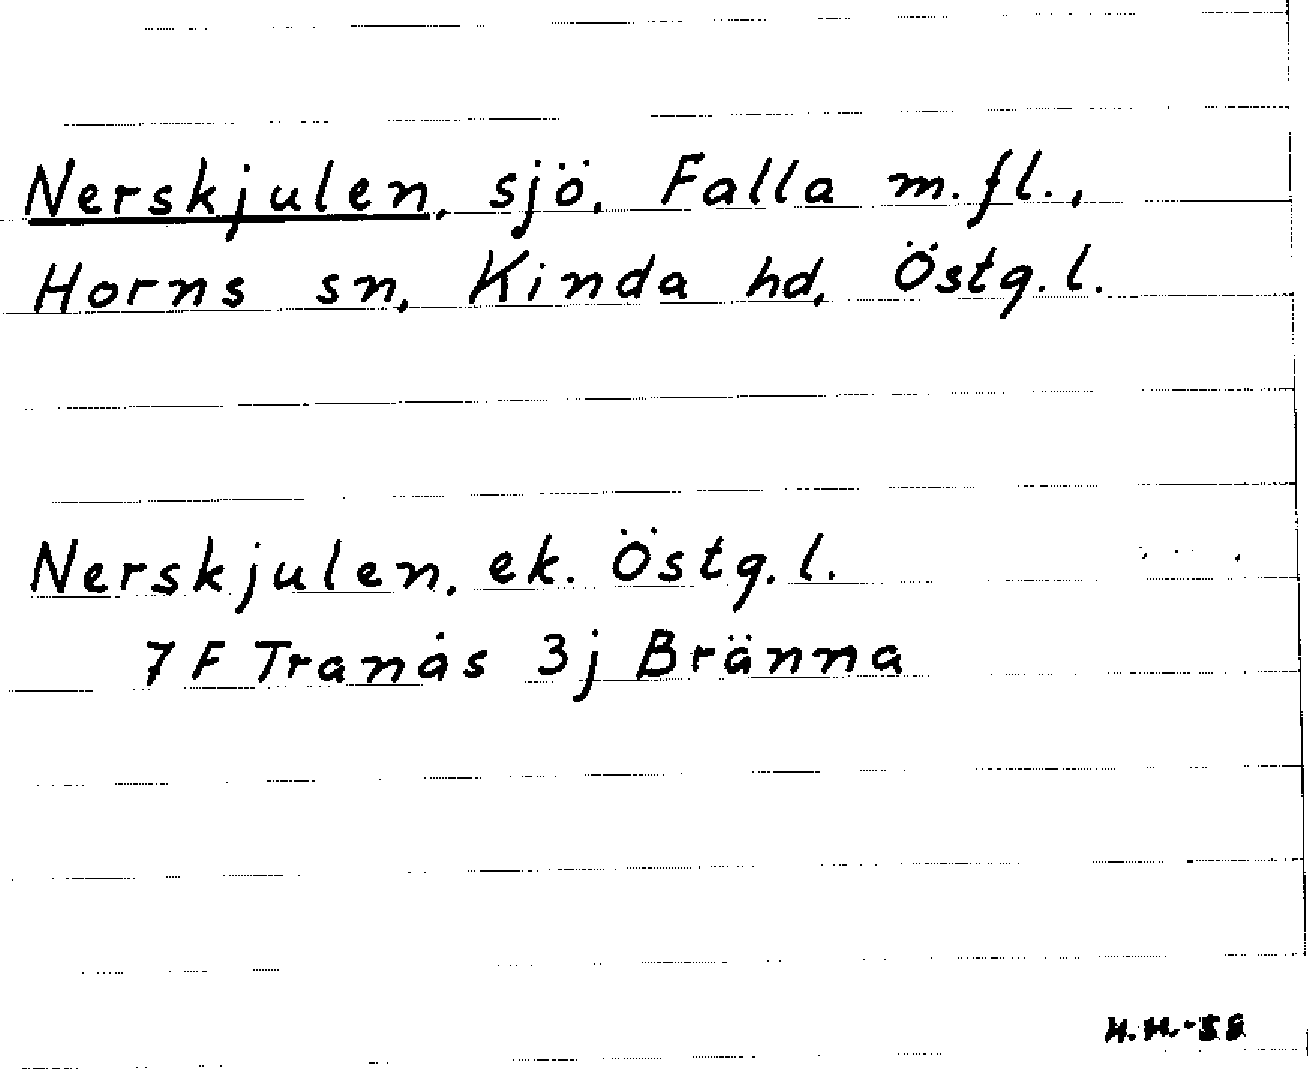 Nerskjulen, sjö, Falla m.fl.,
Horns sn, Kinda hd, Östg.l.
Nerskjulen, ek. Östg.l.
7 F Tranås 3j Bränna